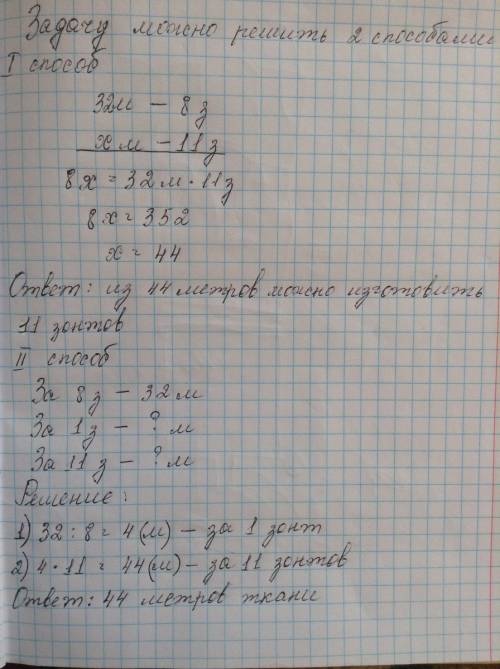 Задачу можно решить 2 способами
I способ
32м – 8з
хм – 11з
8х = 32м · 11з
8х = 352
х = 44
Ответ: из 44 метров можно изготовить
11 зонтов
II способ
За 8з – 32м
За 1з – ? м
За 11з – ? м
Решение:
1) 32 : 8 = 4(м) – за 1 зонт
2) 4 · 11 = 44(м) – за 11 зонтов
Ответ: 44 метров ткани